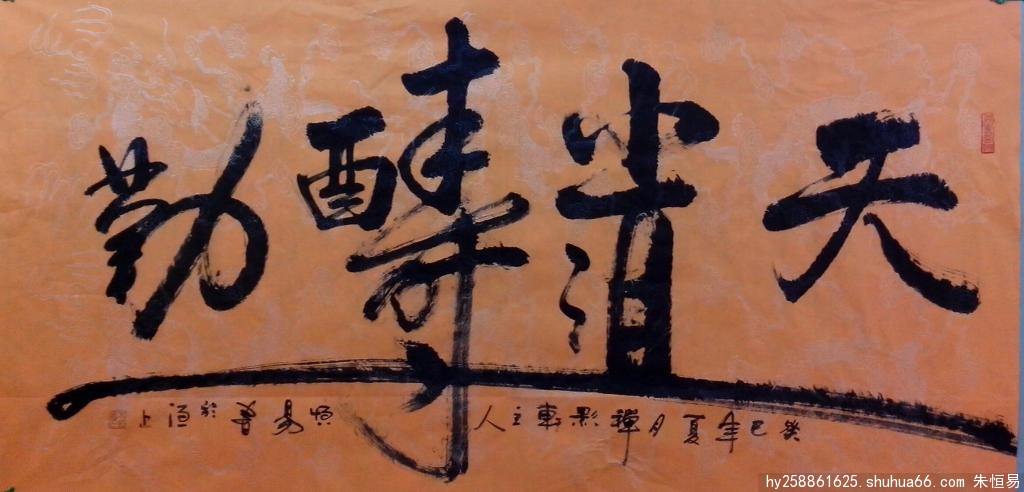 天道醻勤
癸巳年夏月禪影軒主人
恒易書於上
hy258861625.shuhua66.com 朱恒易